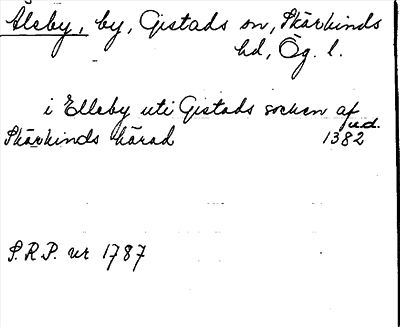 Äleby, by, Gistads sn, Skärkinds
hd, Ög. l.
i Elleby uti Gistads socken af
Skärkinds härad u.d.
1382
S.R.P. nr 1787